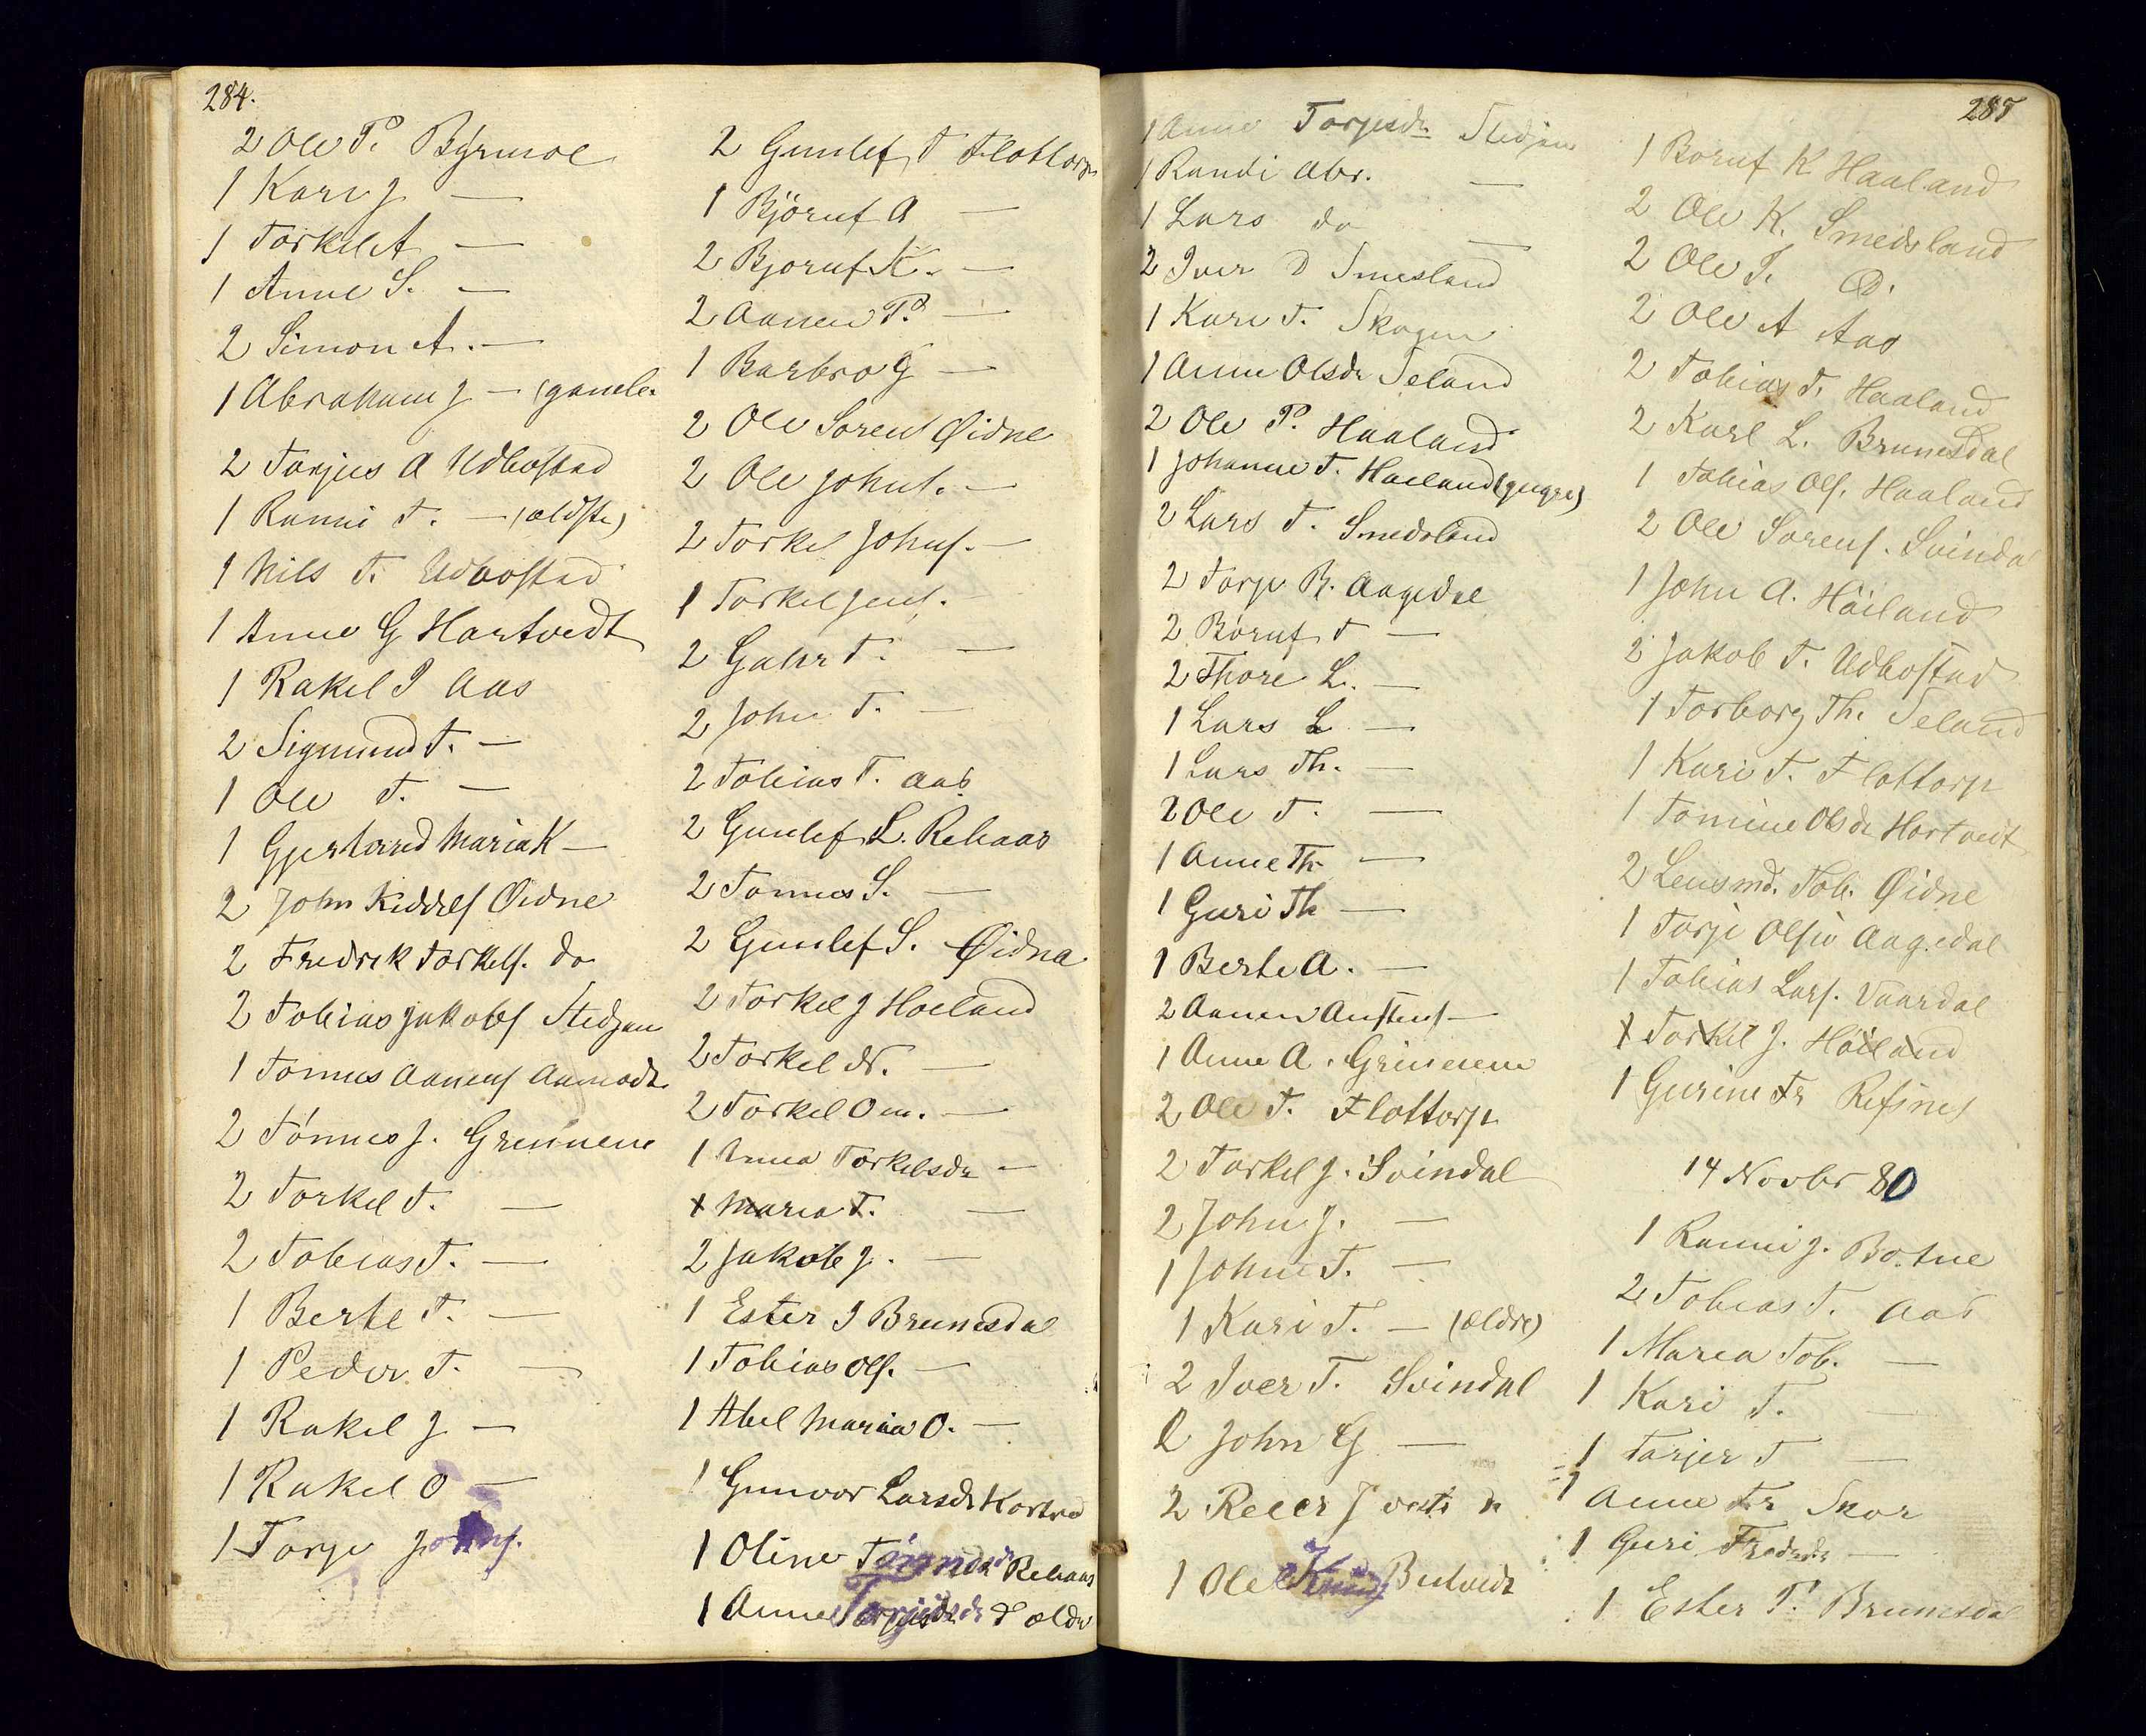 284.
2 Ole P. Byrmoe
1 Kari J —
1 Torkel A —
1 Anne S. —
2 Simon A. —
1 Abraham J — (gamle.
2 Torjus A Udbostad
1 Ranni T. — (ældste)
1 Nils T. Udbostad
1 Anne G Hortvedt
1 Rakel P Aas
2 Sigmund T. —
1 Ole T. —
1 Gjertarud Maria K —
2 John Keddels Øidne
2 Fredrik Torkels. do
2 Tobias Jakobs Stedjan
1 Tomes Aanens Aamodt
2 Tönnes J. Grennene
2 Torkel T. —
2 Tobias T. —
1 Berte T. —
1 Peder T. —
1 Rakel J —
1 Rakel O —
1 Torje Johns.
2 Gunlef T Flottorp
1 Björuf A —
2 Bjoruf K. —
2 Aanen P. —
1 Barbro G —
2 Ole Sorens Øidne
2 Ole Johns. —
2 Torkel Johns. —
1 Torkel Jens. —
2 Gahr T. —
2 John T. —
2 Tobias T. Aas
2 Gunlef L. Rehaas
2 Tonnes S. —
2 Gunlef S. Øidna
2 Torkel J Hoeland
2 Torkel N. —
2 Torkel Om. —
1 Anna Torkelsdr —
1 Maria T. —
2 Jakob J. —
1 Ester J Brunesdal
1 Tobias Ols. —
1 Abel Maria O. —
1 Gunvor Larsdr Kortved
1 Oline Tönnesdr Rehaas
1 Anne Torjusdr d ældr
285
1 Anne Torjesdr Stedjan
1 Randi Abr. —
1 Lars do —
2 Iver D Smesland
1 Kari T. Skogen
1 Anne Olsdr Seland
2 Ole P. Haaland
1 Johanne T. Haeland (yngre)
2 Lars T. Smedsland
2 Torje B. Aagedal
2 Böruf T —
2 Thore L. —
1 Lars L —
1 Lars Th. —
2 Ole T. —
1 Anne Th —
1 Guri Th —
1 Berte A. —
2 Aanen Austens —
1 Anne A. Grinenene
2 Ole T. Flottorp
2 Torkel J. Svindal
2 John J. —
1 John T. —
1 Kari T. — (ældre)
2 Iver T. Svindal
2 John G —
2 Reier J
1 Ole Knuds Bustvedt
1 Boruf K Haaland
2 Ole K. Smedsland
2 Ole T. D.
2 Ole A Aas
2 Tobias T. Haaland
2 Karl L. Brunesdal
1 Tobias Ols. Haaland
2 Ole Sorens. Svindal
1 John A. Höiland
2 Jakob T. Udbostad
1 Torborg Th. Seland
1 Kari T. Flottorp
1 Tomine Olsdr Hortvedt
2 Lensmd. Tob. Øidne
1 Torje Olsen Aagedal
1 Tobias Lars. Vaardal
1 Torkel J. Höiland
1 Gurine Fr Refsnes
14 Novbr 80
1 Ranni J. Botne
2 Tobias T. Aas
1 Maria Tob. —
1 Kari T. —
1 Torjer T —
1 Anne Fr Skor
1 Guri Fredrdr —
1 Ester P. Brunesdal